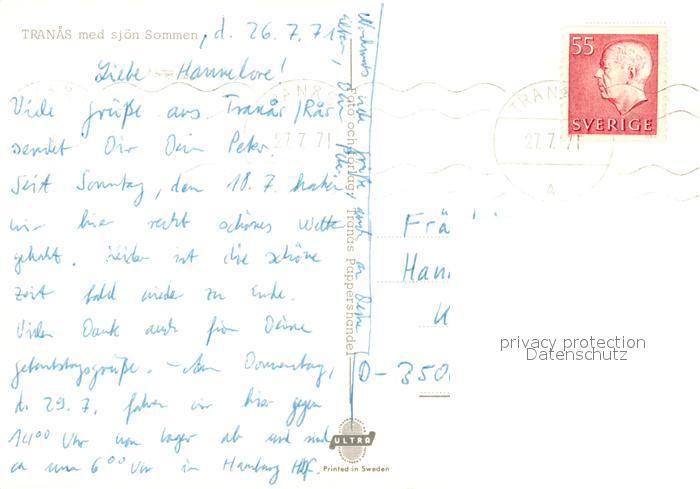 TRANÅS med sjön Sommen, d. 26.7.71
Liebe Hannelore!
Viele Grüße aus Tranås/Rår
sendet Dir Dein Peter.
Seit Sonntag, dem 18.7. hatten
wir hier recht schönes Wetter
gehabt. Leider ist die schöne
Zeit bald wieder zu Ende.
Vielen Dank auch für Deine
Geburtstagsgrüße. - Am Donnerstag,
d. 29.7. fahren wir hier gegen
14⁰⁰ Uhr vom Lager ab und sind
ca um 6⁰⁰ Uhr in Hamburg Hbf.
Nochmals viele Grüße auch an Deine
Eltern, Dein Peter
Foto och förlag: Tranås Pappershandel
ULTRA
Printed in Sweden
55
SVERIGE
TRANÅS
27.7.71
A
TRANÅS
27.7.71
Frä
Han
D-350
privacy protection
Datenschutz